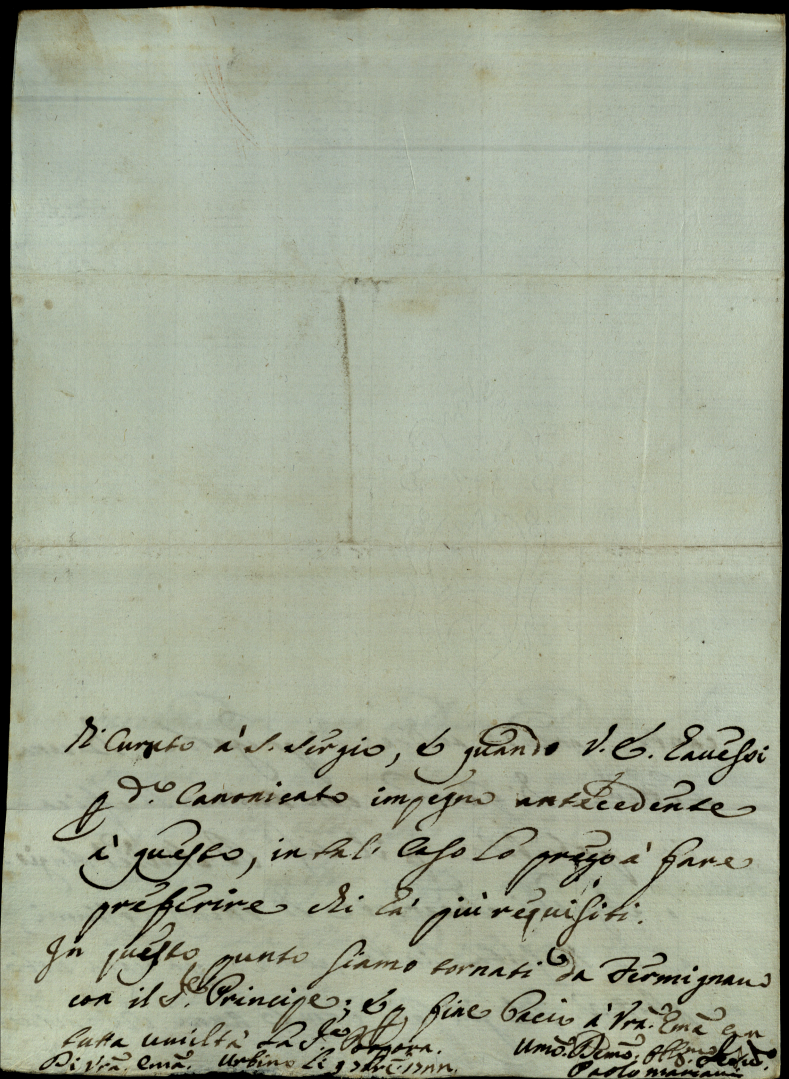 di Curato à S. Sergio, e quando V. E. l'avessi
p d.º Canonicato impegno antecedente
à questo, in tal' Caso lo prego à fare
preferire chi hà più requisiti.
In questo punto siamo tornati da Fermignano
con il S.re Principe; e p fine bacio à Vrã. Emã con
tutta umiltà la S.ra Porpora.
Di Vrã. Emã. Urbino li 9
Umo. Demo: Obbmo Servo.
Paolo Mariani